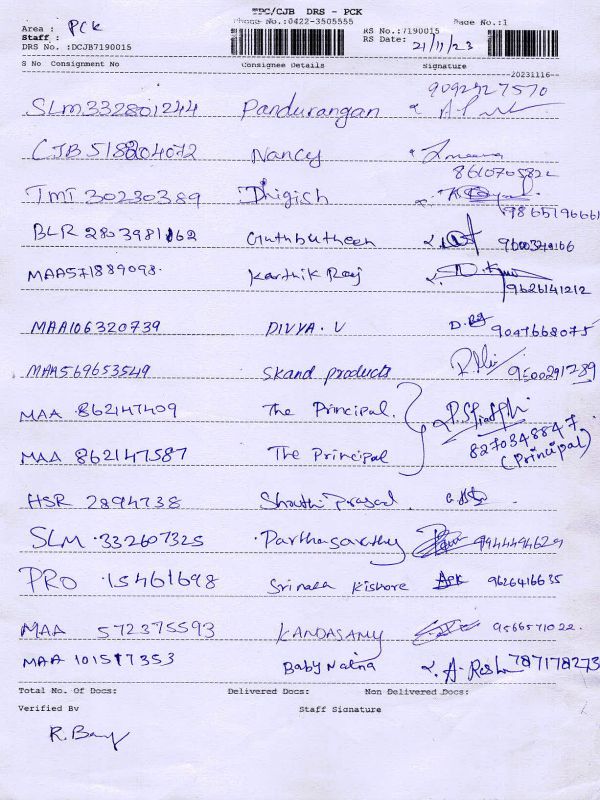 TPC/CJB DRS - PCK
Area : PCK Phone No.:0422-3505555 Page No.:1
Staff : RS No.:7190015
DRS No. :DCJB7190015 RS Date: 21/11/23
S No Consignment No Consignee Details Signature
20231116
SLM 332801244 Pandurangan 9092427570
CJB 518204072 Nancy
TMT 30230389 Dhigish 9865196661
BLR 2853981162 Guthbutheen 9600349166
MAA571889098. Karthik Raj 9626141212
MAA106320739 DIVYA. V 9047668075
MAA569653549 Skand products 9500291289
MAA 862147409 The Principal.
MAA 862147587 The Principal 8270348847 (Principal)
HSR 2894738 Shruthi Prasad.
SLM .332607325 Parthasarathy 9944494629
PRO .15461698 Srinasa Kishore 9626416635
MAA 572375593 KANDASAMY 9566571022.
MAA 101517353 Baby Naina 787178273
Total No. Of Docs: Delivered Docs: Non Delivered Docs:
Verified By Staff Signature